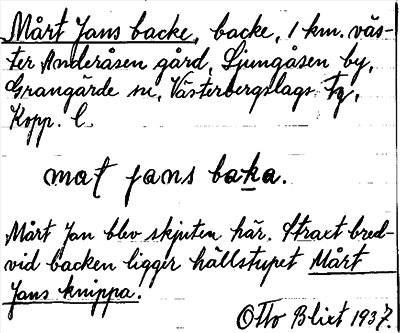 Mårt Jans backe, backe, 1 km. väs-
ter Anderåsen gård, Ljungåsen by,
Grangärde sn, Västerbergslags fg,
Kopp. l.
mat jans baka.
Mårt Jan blev skjuten här. Straxt bred-
vid backen ligger hällstupet Mårt
Jans knippa.
Otto Blixt 1937.